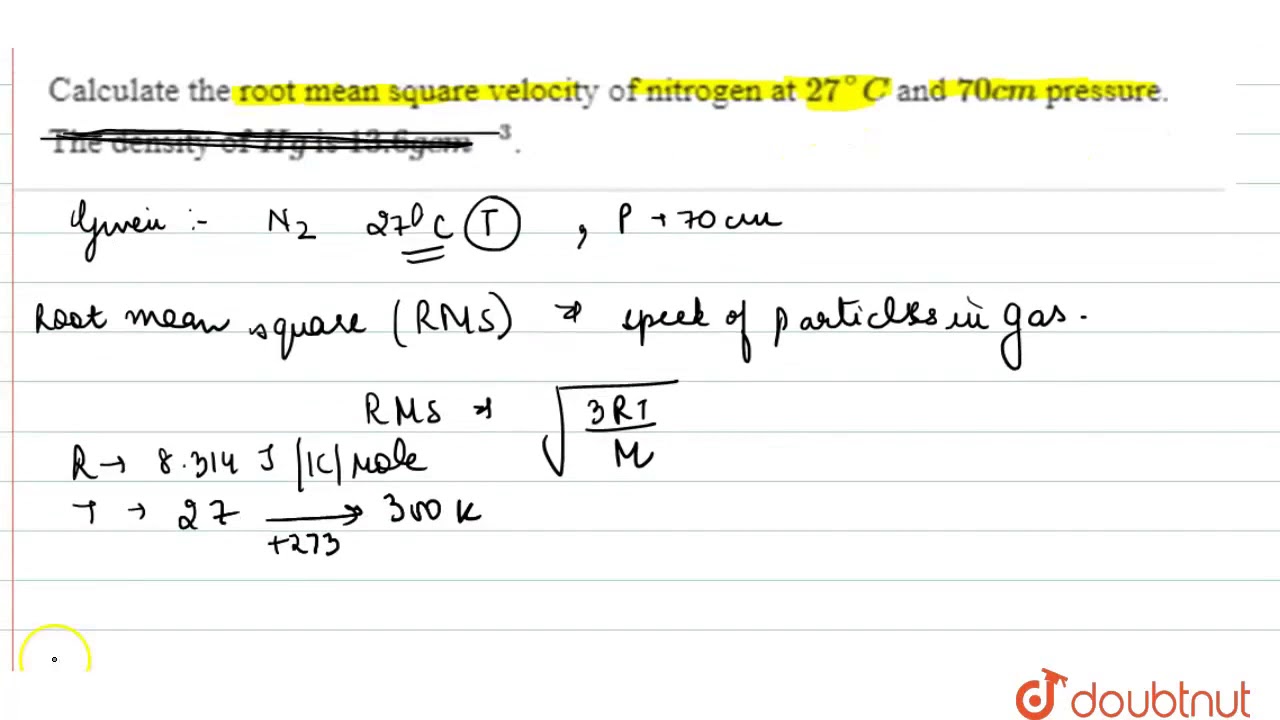 Calculate the root mean square velocity of nitrogen at 27°C and 70cm pressure.
The density of Hg is 13.6gcm⁻³.
Given :- N₂ 27°C (T) , P → 70 cm
Root mean square (RMS) → speed of particles in gas.
RMS → √(3RT/M)
R → 8.314 J/K/mole
T → 27 → 300 K
+273
doubtnut